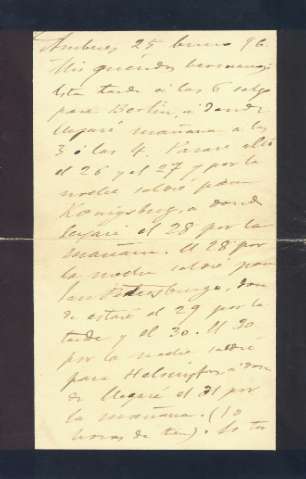 Amberes 25 Enero 96.
Mis queridos hermanos:
Esta tarde á las 6 salgo
para Berlin, á donde
llegaré mañana a las
3 ó las 4. Pasaré allí
el 26 y el 27 y por la
noche saldré para
Königsberg, a donde
llegaré el 28 por la
mañana. El 28 por
la noche saldré para
San Petersburgo, don
de estaré el 29 por la
tarde y el 30. El 30
por la noche saldré
para Helsingfors, á don
de llegaré el 31 por
la mañana. (10
horas de tren).